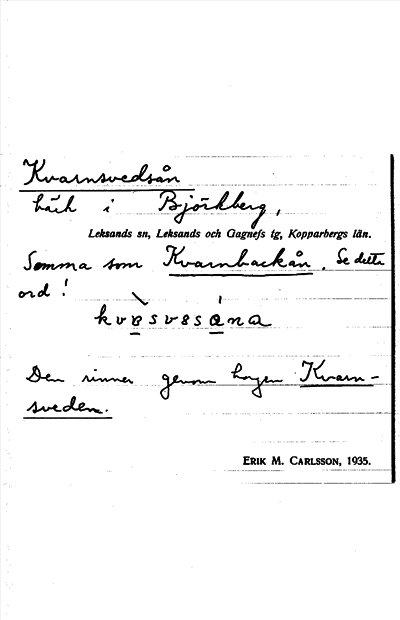 Kvarnsvedsån
bäck i Björkberg,
Leksands sn, Leksands och Gagnefs tg, Kopparbergs län.
Samma som Kvarnbackån. Se detta
ord!
Den rinner genom hagen Kvarn-
sveden.
ERIK M. CARLSSON, 1935.